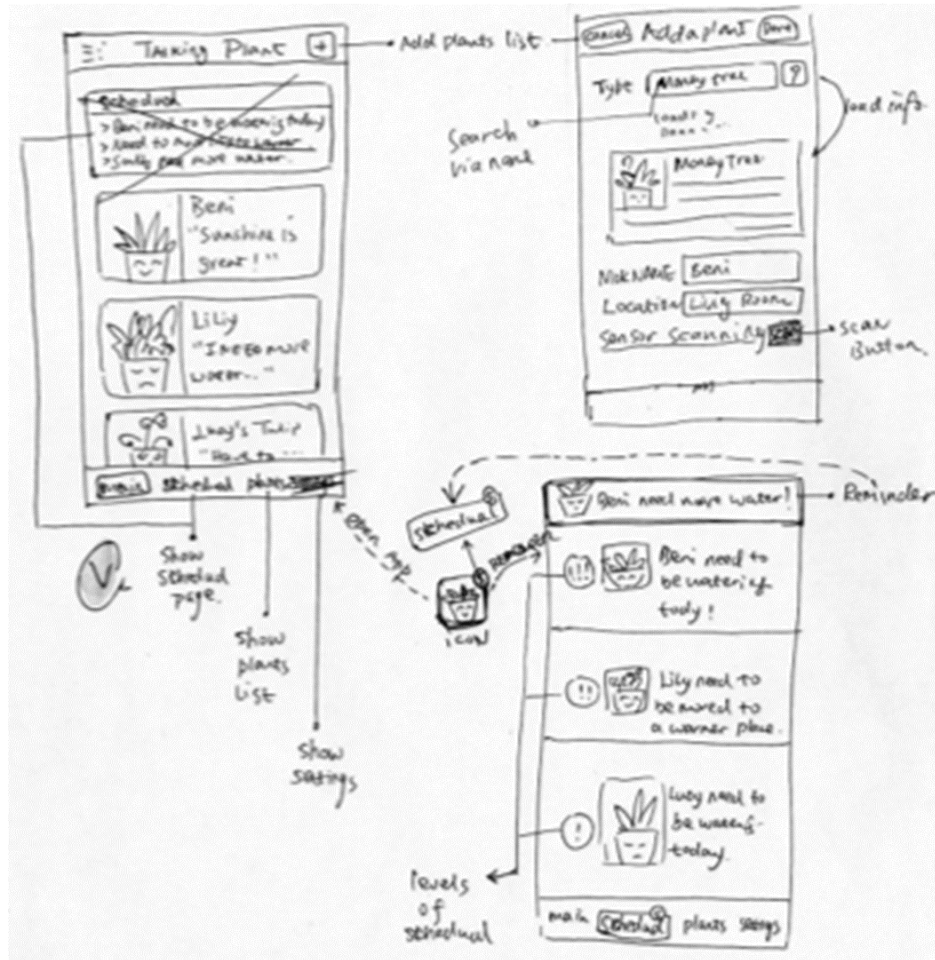 Talking Plant +
Schedual
> Beni need to be watering today
> Need to
> more water.
Beni
"Sunshine is
great! "
Lily
"I need more
water..."
Lucy's Tulip
"Have to ...
main schedual plants
Show
schedual
page.
Show
plants
list
Show
settings
V
Add plants list
Cancel Add a plant Done
Type Money tree ?
load info
Search
via name
Money Tree
NICKNAME Beni
Location Living Room
Sensor Scanning Scan
Scan
Button.
open app
schedual
Reminder
icon
Beni need more water!
Reminder
!!! Beni need to
be watering
tody!
!! Lily need to
be moved to
a warmer place.
! Lucy need to
be watering
today.
levels
of
schedual
main schedual plants settings